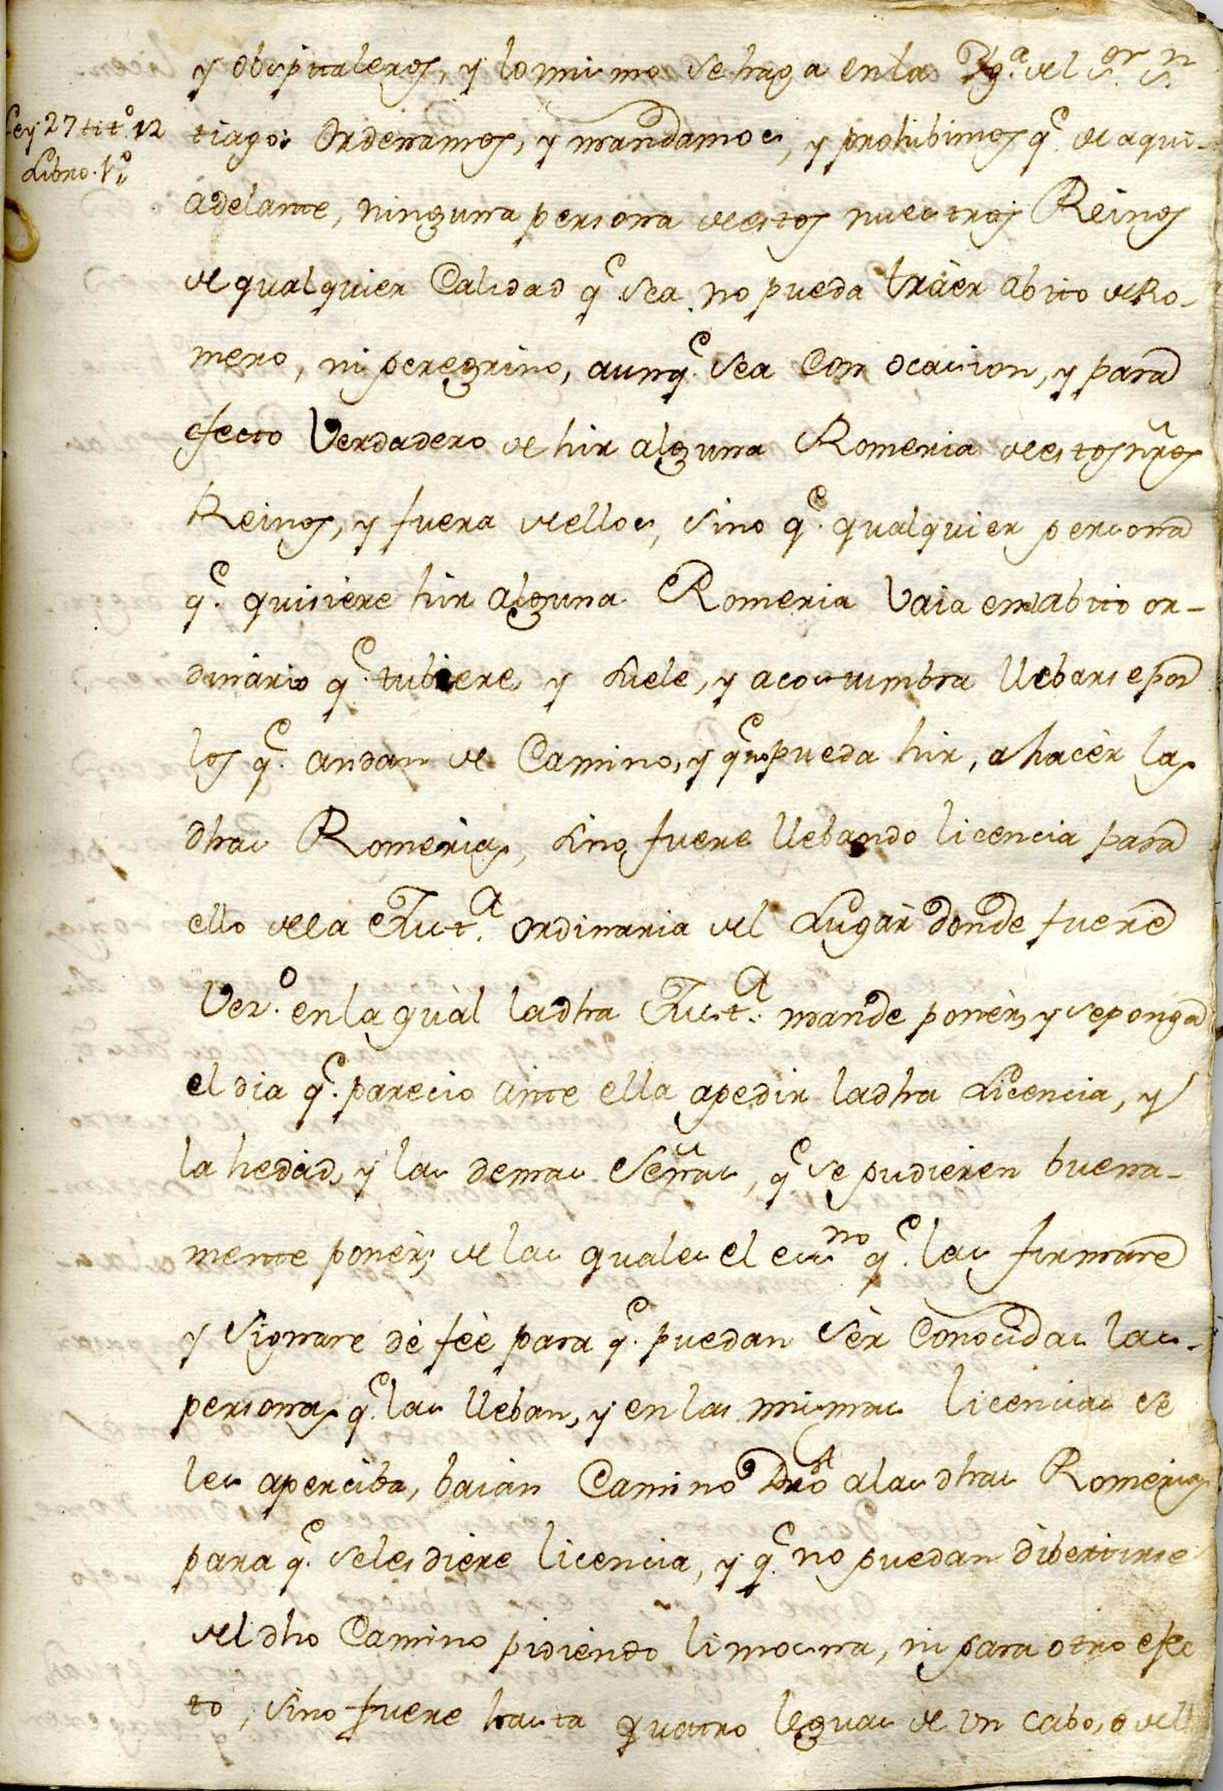 y obispitaleros, y lo mismo se haga en la Yg.ª del S.or S.n
Ley 27 tit.º 12
Libro. 1.º
tiago: Ordenamos, y mandamos, y prohibimos q.e de aqui-
adelante, ninguna persona de estos nuestros Reinos
de qualquier Calidad q.e sea no pueda tràer abito de Ro-
mero, ni peregrino, aunq.e sea Con ocasion, y para
efecto Verdadero de hir alguna Romeria de estos nros
Reinos, y fuera de ellos, sino q.e qualquier persona
q.e quisiere hir alguna Romeria Vaia en el abito or-
dinario q.e tubiere y suele, y acostumbra llebarse por
los q.e andan de Camino, y q.e no pueda hir, a hacèr las
dhas Romerias, sino fuere llebando licencia para
ello de la Just.ª ordinaria del Lugàr donde fuere
Vez.º en la quàl la dha Just.ª mande ponèr, y se ponga
el dia q.e parecio ante ella a pedir la dha Licencia, y
la hedad, y las demas Señas, q.e se pudieren buena-
mente ponèr; de las quales el es.no q.e las firmare
y Signare dè feè para q.e puedan Sèr Conocidas las-
personas q.e las lleban, y en las mismas licencias se
les aperciba, baian Camino Dro a las dhas Romerias
para q.e se les diere licencia, y q.e no puedan dibertirse
del dho Camino pidiendo limosna, ni para otro efec
to, sino fuere hasta quatro leguas de un cabo, o del